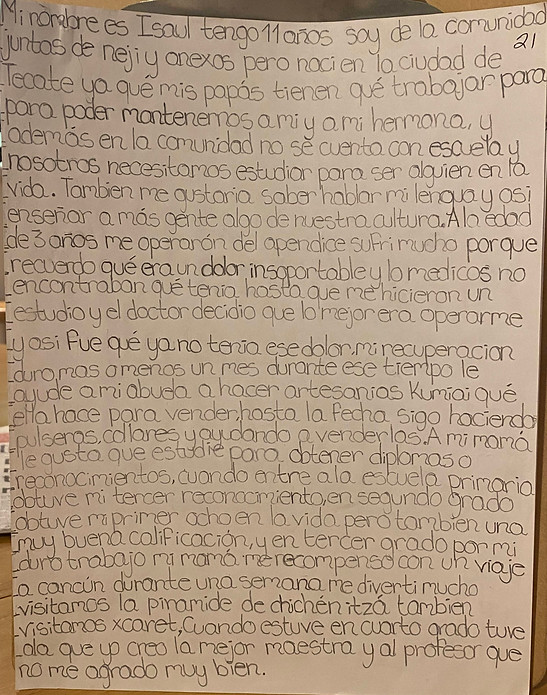 Mi nombre es Isaul tengo 11 años soy de la comunidad
21
juntos de neji y anexos pero naci en la ciudad de
Tecate ya qué mis papás tienen qué trabajar para
para poder mantenernos a mi y a mi hermana, y
además en la comunidad no se cuenta con escuela y
nosotros necesitamos estudiar para ser alguien en la
vida. Tambien me gustaria saber hablar mi lengua y asi
enseñar a más gente algo de nuestra cultura. A la edad
de 3 años me operarón del apendice sufri mucho porque
recuerdo qué era un dolor insoportable y lo medicos no
encontraban qué tenia hasta que me hicieron un
estudio y el doctor decidio que lo mejor era operarme
y asi fue qué ya no tenia ese dolor, mi recuperacion
duro mas o menos un mes durante ese tiempo le
ayude a mi abuela a hacer artesanias Kumiai qué
ella hace para vender, hasta la fecha sigo haciendo
pulseras, collares y ayudando a venderlas. A mi mamá
le gusta que estudie para obtener diplomas o
reconocimientos, cuando entre a la escuela primaria
obtuve mi tercer reconocimiento, en segundo grado
obtuve mi primer ocho en la vida pero tambien una
muy buena calificación, y en tercer grado por mi
duro trabajo mi mamá me recompenso con un viaje
a cancún durante una semana me diverti mucho
visitamos la piramide de chichén itzá tambien
visitamos xcaret, Cuando estuve en cuarto grado tuve
ala que yo creo la mejor maestra y al profesor que
no me agrado muy bien.